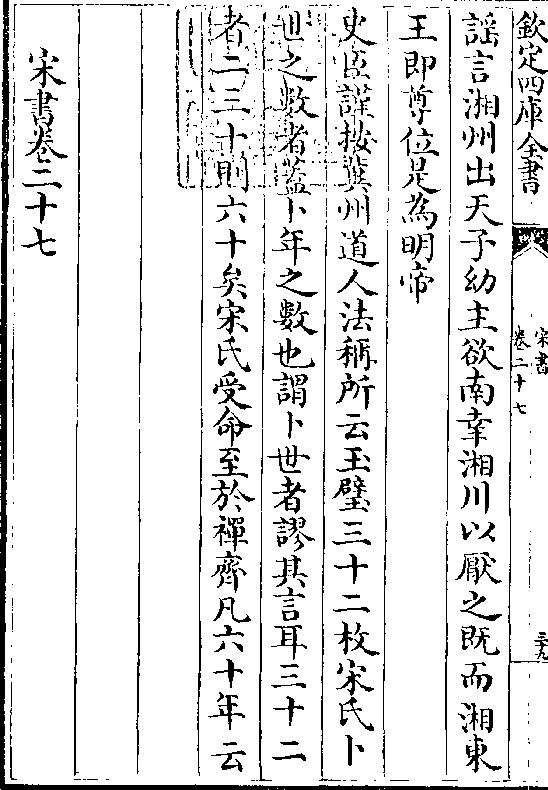 欽定四庫全書
宋書
卷二十七
三九
謡言湘州出天子幼主欲南幸湘川以厭之既而湘東
王即尊位是為明帝
史臣謹按冀州道人法稱所云玉璧三十二枚宋氏卜
世之數者蓋卜年之數也謂卜世者謬其言耳三十二
者二三十則六十矣宋氏受命至於禪齊凡六十年云
宋書卷二十七